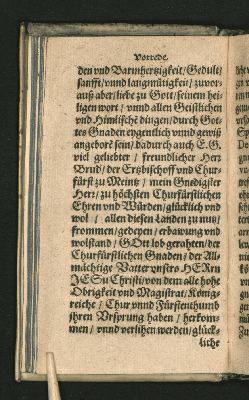 Vorrede.
den vnd Barmhertzigkeit/ Gedult/
sanfft/ vnnd langmütigkeit/ zuvor-
auß aber/ liebe zu Gott/ seinem hei-
ligen wort/ vnnd allen Geistlichen
vnd Himlische dingen/ durch Got-
tes Gnaden eygentlich vnnd gewiß
angeborē sein/ dadurch auch E. G.
viel geliebter / freundlicher Herr
Brud/ der Ertzbischoff vnd Chur-
fürst zu Meintz / mein Gnedigster
Herr/ zu höchsten Churfürstlichen
Ehren vnd Würden/ glücklich vnd
wol / allen diesen Landen zu nutz/
frommen/ gedeyen/ erbawung vnd
wolstand / GOtt lob gerahten/ der
Churfürstlichen Gnaden/ der All-
mächtige Vatter vnsers HERrn
JESu Christi/ von dem alle hohe
Obrigkeit vnd Magistrat/ König-
reiche / Chur vnnd Fürstenthumb
ihren Vrsprung haben / herkom-
men/ vnnd verlihen werden/ glück-
liche